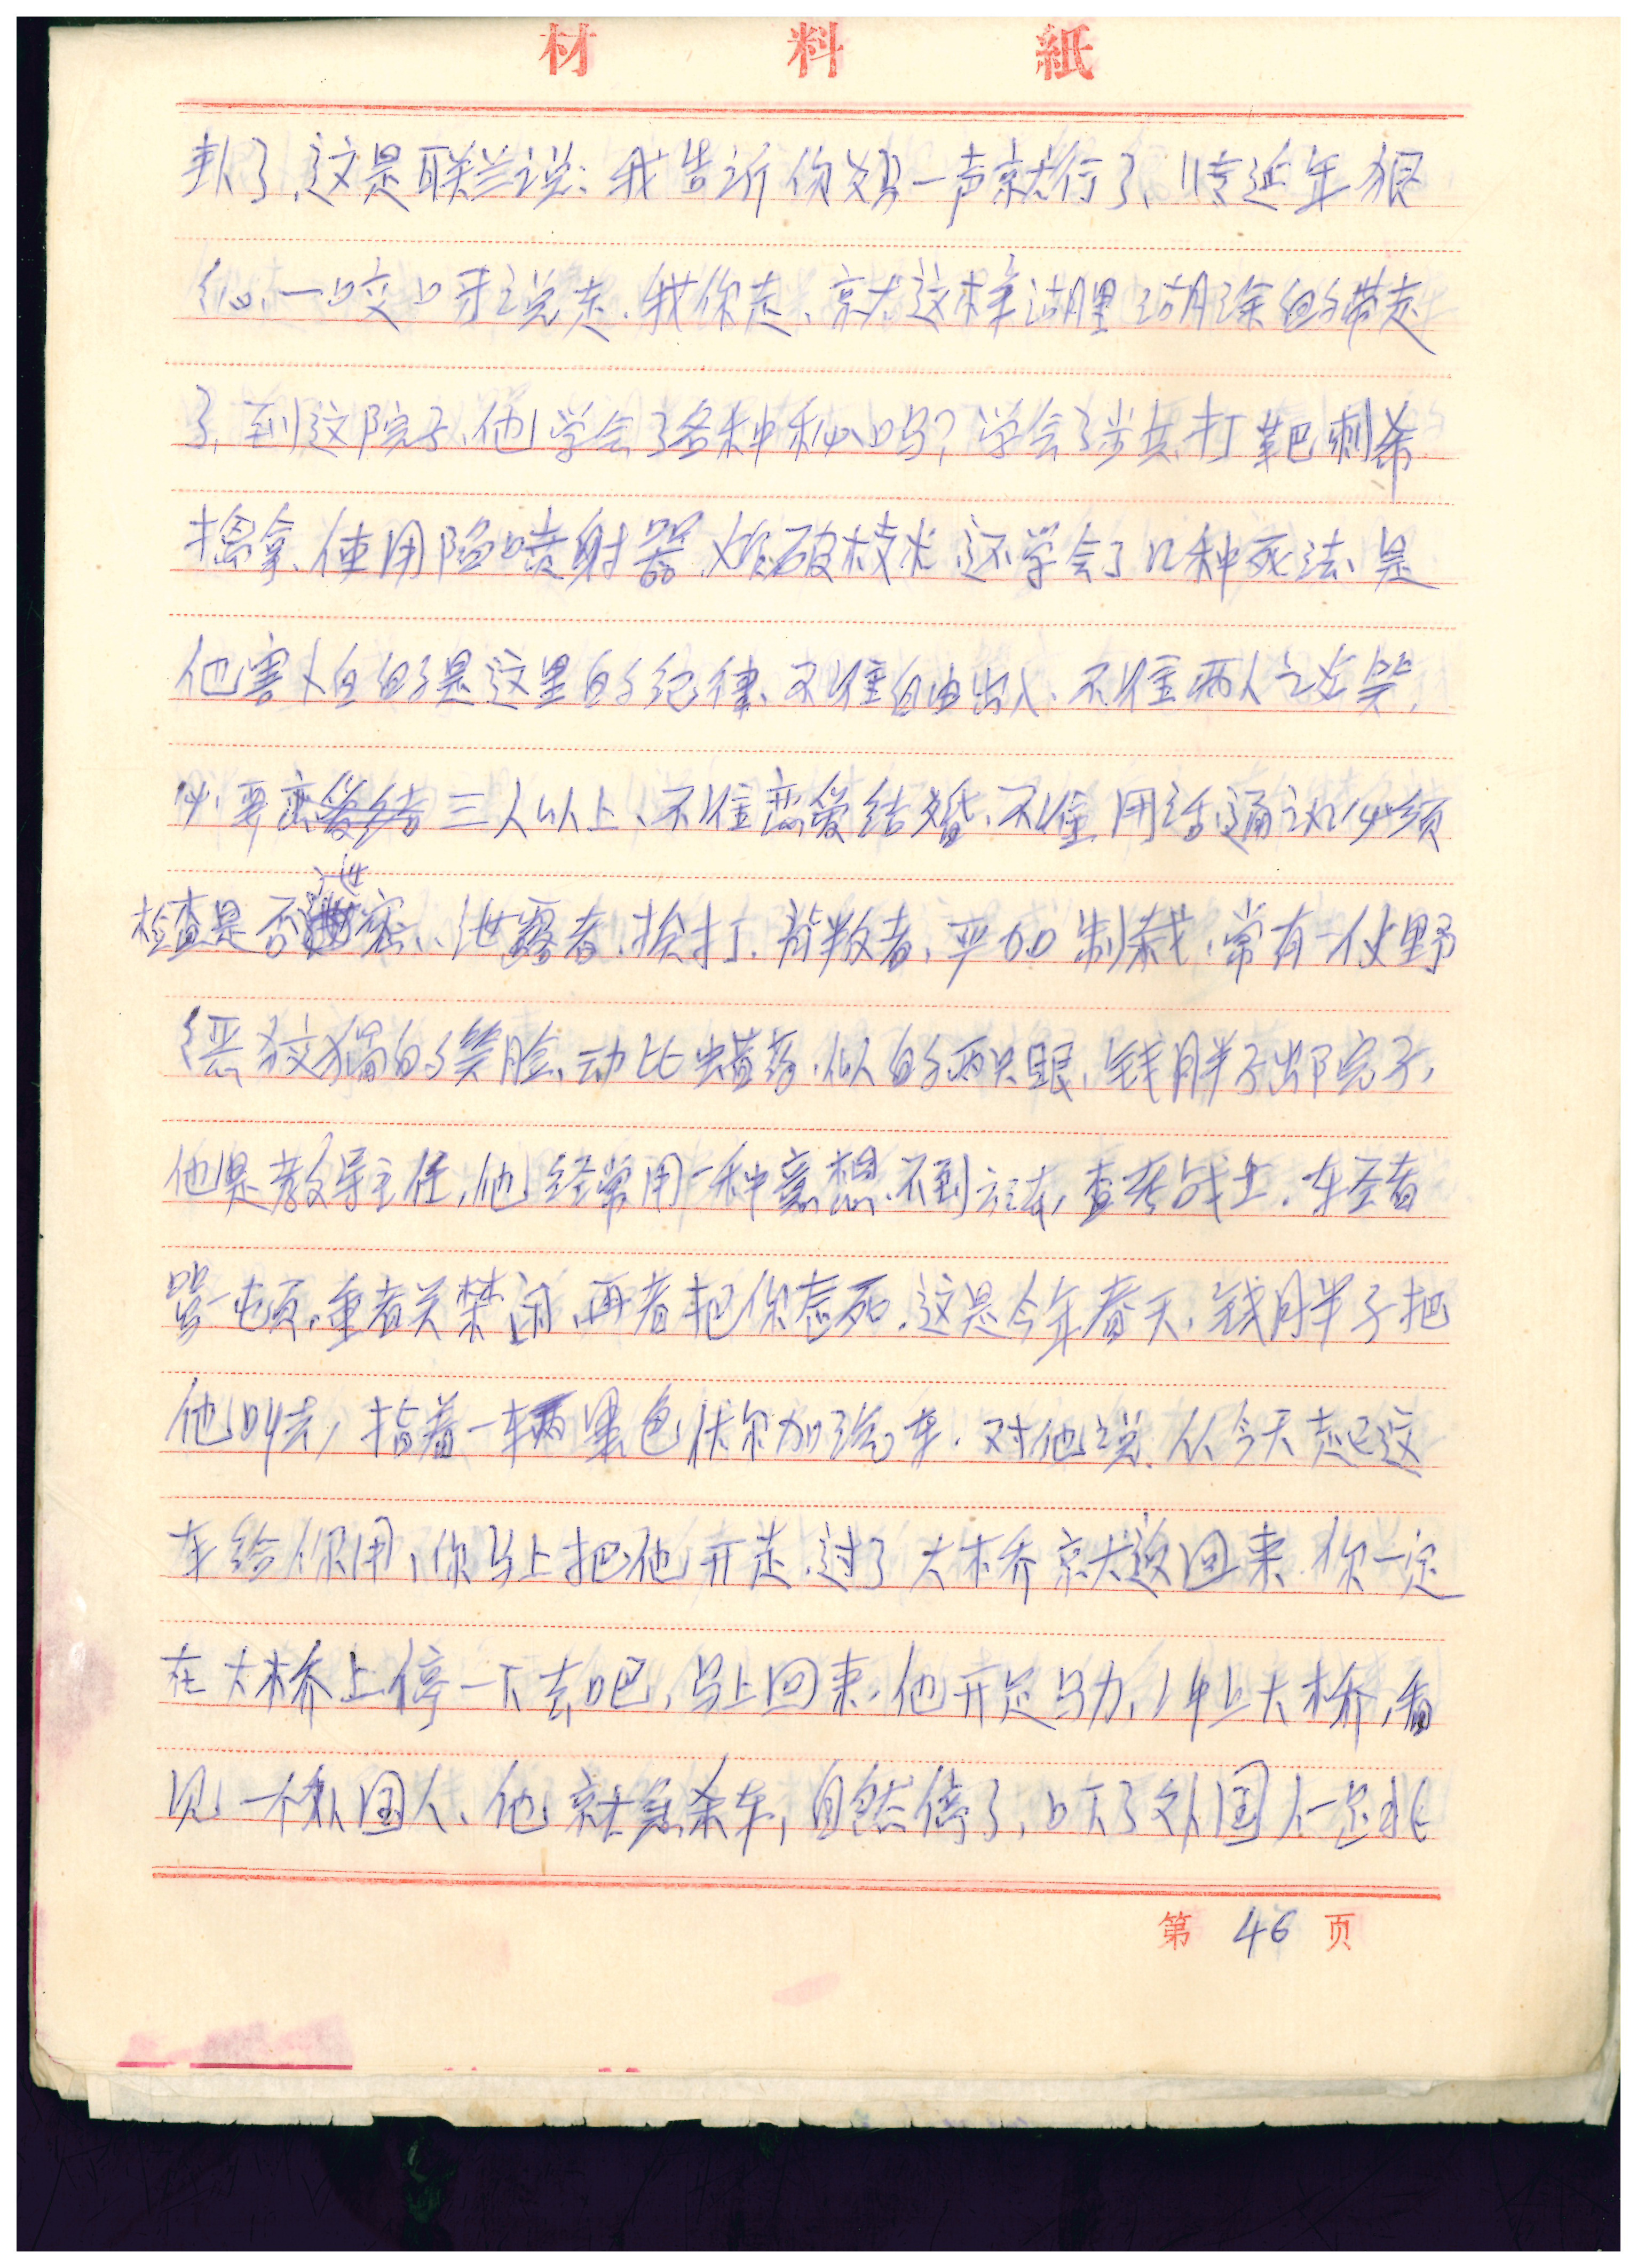 材料紙
了,这是联兰说:我告诉你妈一声就行了,唐延年狠
心一咬口牙说走,我你走、就这样湖里胡涂的带走
了,到这院子,他学会了各种秘吗?学会了步兵打靶刺杀
擒拿、使用隐喷射器、爆破技术,还学会了几种死法、是
他害怕的是这里的纪律、不准自由出入、不准两人之谈笑,
必要三人以上、不准恋爱结婚、不准用话通讯必须
检查是否泄密、泄露者、挨打、背叛者,严加制裁,常有一付野
狡猫的笑脸、动比似的两只眼,钱胖子出院子,
他是教导主任,他经常用一种意想不到方法,查考战士,车轻者
骂一顿,重者关禁闭,再者把你处死,这是今年春天,钱胖子把
他叫去,指着一辆黑色伏尔加汽车,对他说:从今天起这
车给你用、你马上把他开走,过了大桥就返回来,你一定
在大桥上停一下去吧,马上回来,他开足马力,冲上大桥,看
见一个外国人、他就急杀车,自然停了,吓了外国人一跳
第 46 页